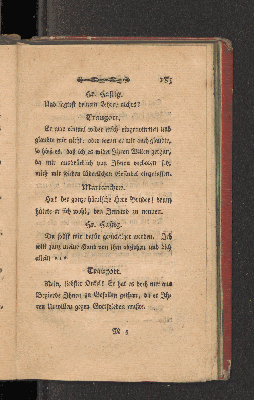 185
Hr. Hastig.
Und sagtest deinem Lehrer nichts?
Traugott.
Er war einmal wider mich eingenommen und
glaubte mir nicht; oder wenn er mir auch glaubte,
so hieß es, daß ich es wider Ihren Willen gethan,
da mir ausdrücklich von Ihnen verboten sey,
mich mit solchen lüderlichen Gesindel einzulassen.
Mariandchen.
Und der ganze hämische Herr Bruder! denn
hütete er sich wohl, den Jemand zu nennen.
Hr. Hastig.
Du sollst mir dafür gezüchtiget werden. Ich
will ganz meine Hand von ihm abziehen und dich
allein * * *
Traugott.
Nein, liebster Onkel! Er hat es doch nur aus
Begierde Ihnen zu Gefallen gethan, da er Ih-
ren Unwillen gegen Gottlieben wußte.
M 5